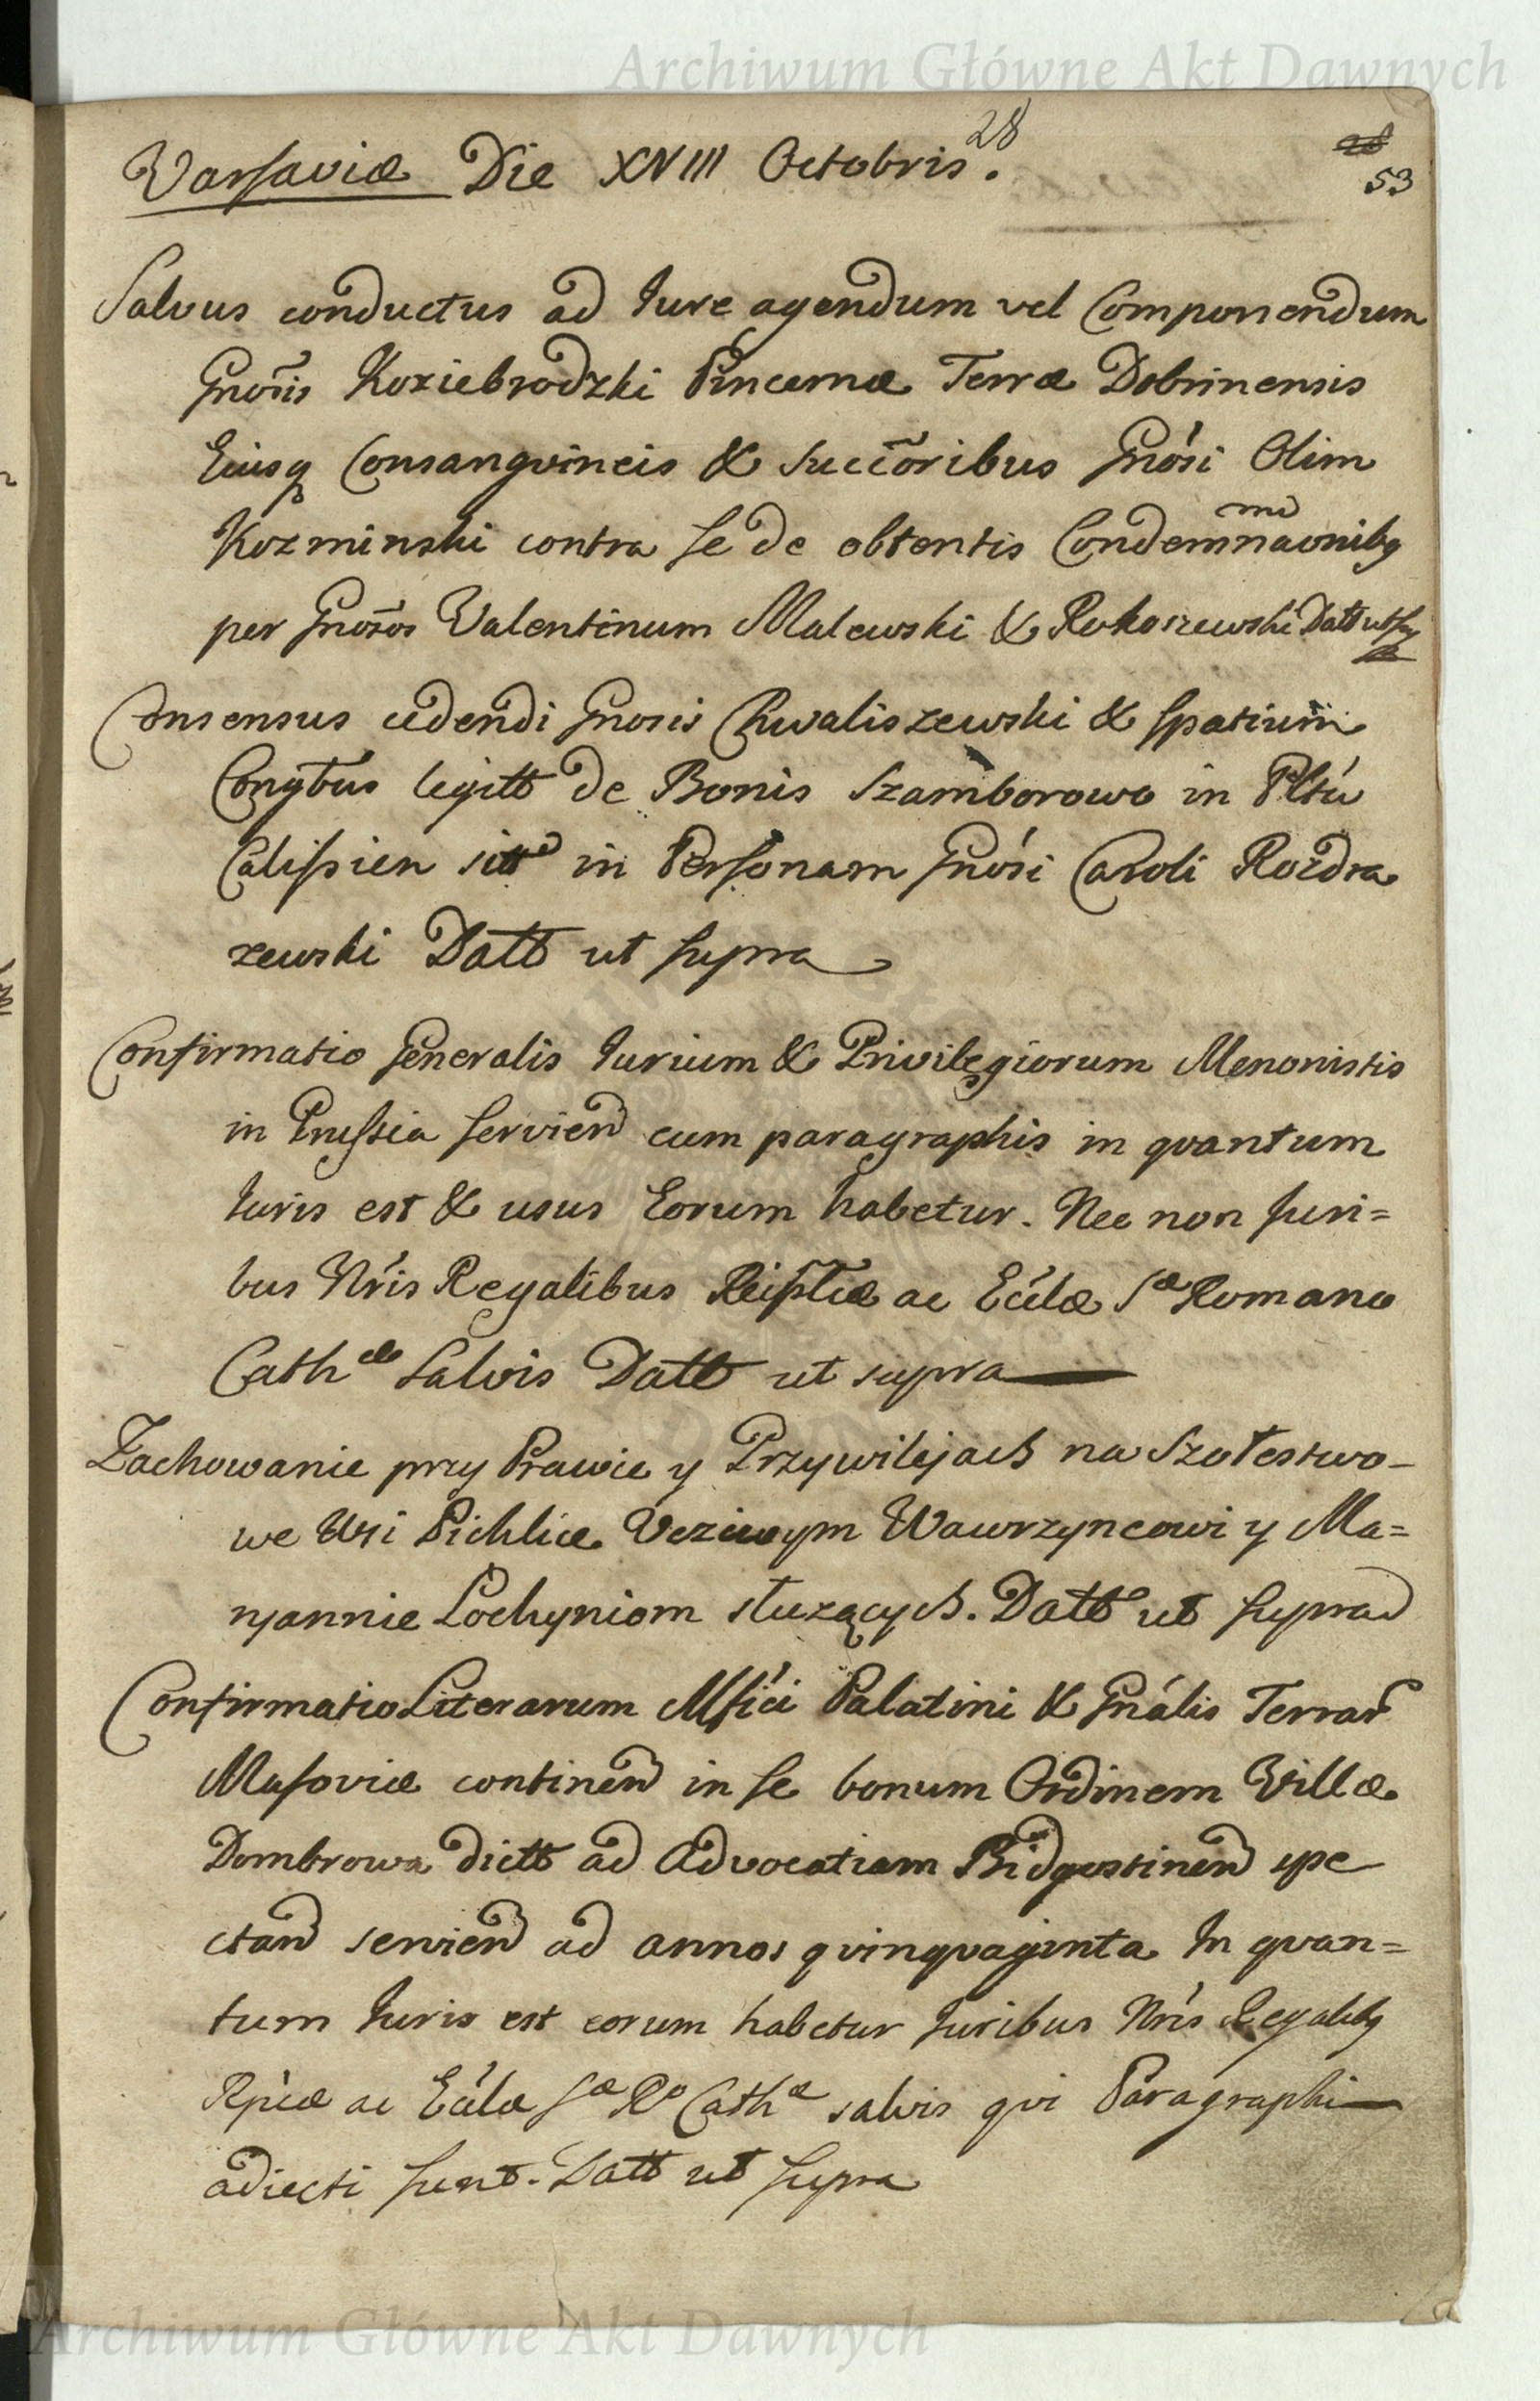 Archiwum Główne Akt Dawnych
28
Varsaviæ Die XVIII Octobris.
53
Salvus conductus ad Iure agendum vel Componendum
Gnõsis Koziebrodzki Pincernæ Terræ Dobrinensis
Eiusq Consangvineis & Succõribus Gnósi Olim
Kozminski contra se de obtentis Condemnaonibq
per Gnosos Valentinum Malewski & Rokoszewski Datt ut sup
Consensus cedendi Gnosis Chwaliszewski & Spatium
Congtbus legitt de Bonis Szamborowo in Pltú
Calissien sitt in Personam Gnósi Caroli Rozdra
zewski Datt ut supra
Confirmatio Generalis Iurium & Privilegiorum Menonistis
in Prussia servien cum paragraphis in qvantum
Iuris est & usus Eorum habetur. Nec non Juri=
bus Nris Regalibus Reiptæ ac Eclæ Sæ Romanæ
Cath Salvis Datt ut supra
Zachowanie przy Prawie y Przywilejach na Szołestwo-
we Wsi Pichlice Uczciwym Wawrzyncowi y Ma=
ryannie Lochyniom służących. Datt ut supra
Confirmatio Literarum Mfici Palatini & Gnális Terrar
Masoviæ continen in se bonum Ordinem Villæ
Dombrowa dictt ad Advocatiam Bidgostinen spe
ctan servien ad annos qvinqvaginta In qvan=
tum Iuris est eorum habetur Juribus Nris Regalibq
Rpicæ ac Eclæ Sæ Ro Cathæ salvis qvi Paragraphi
adiecti sunt. Datt ut supra
Archiwum Główne Akt Dawnych